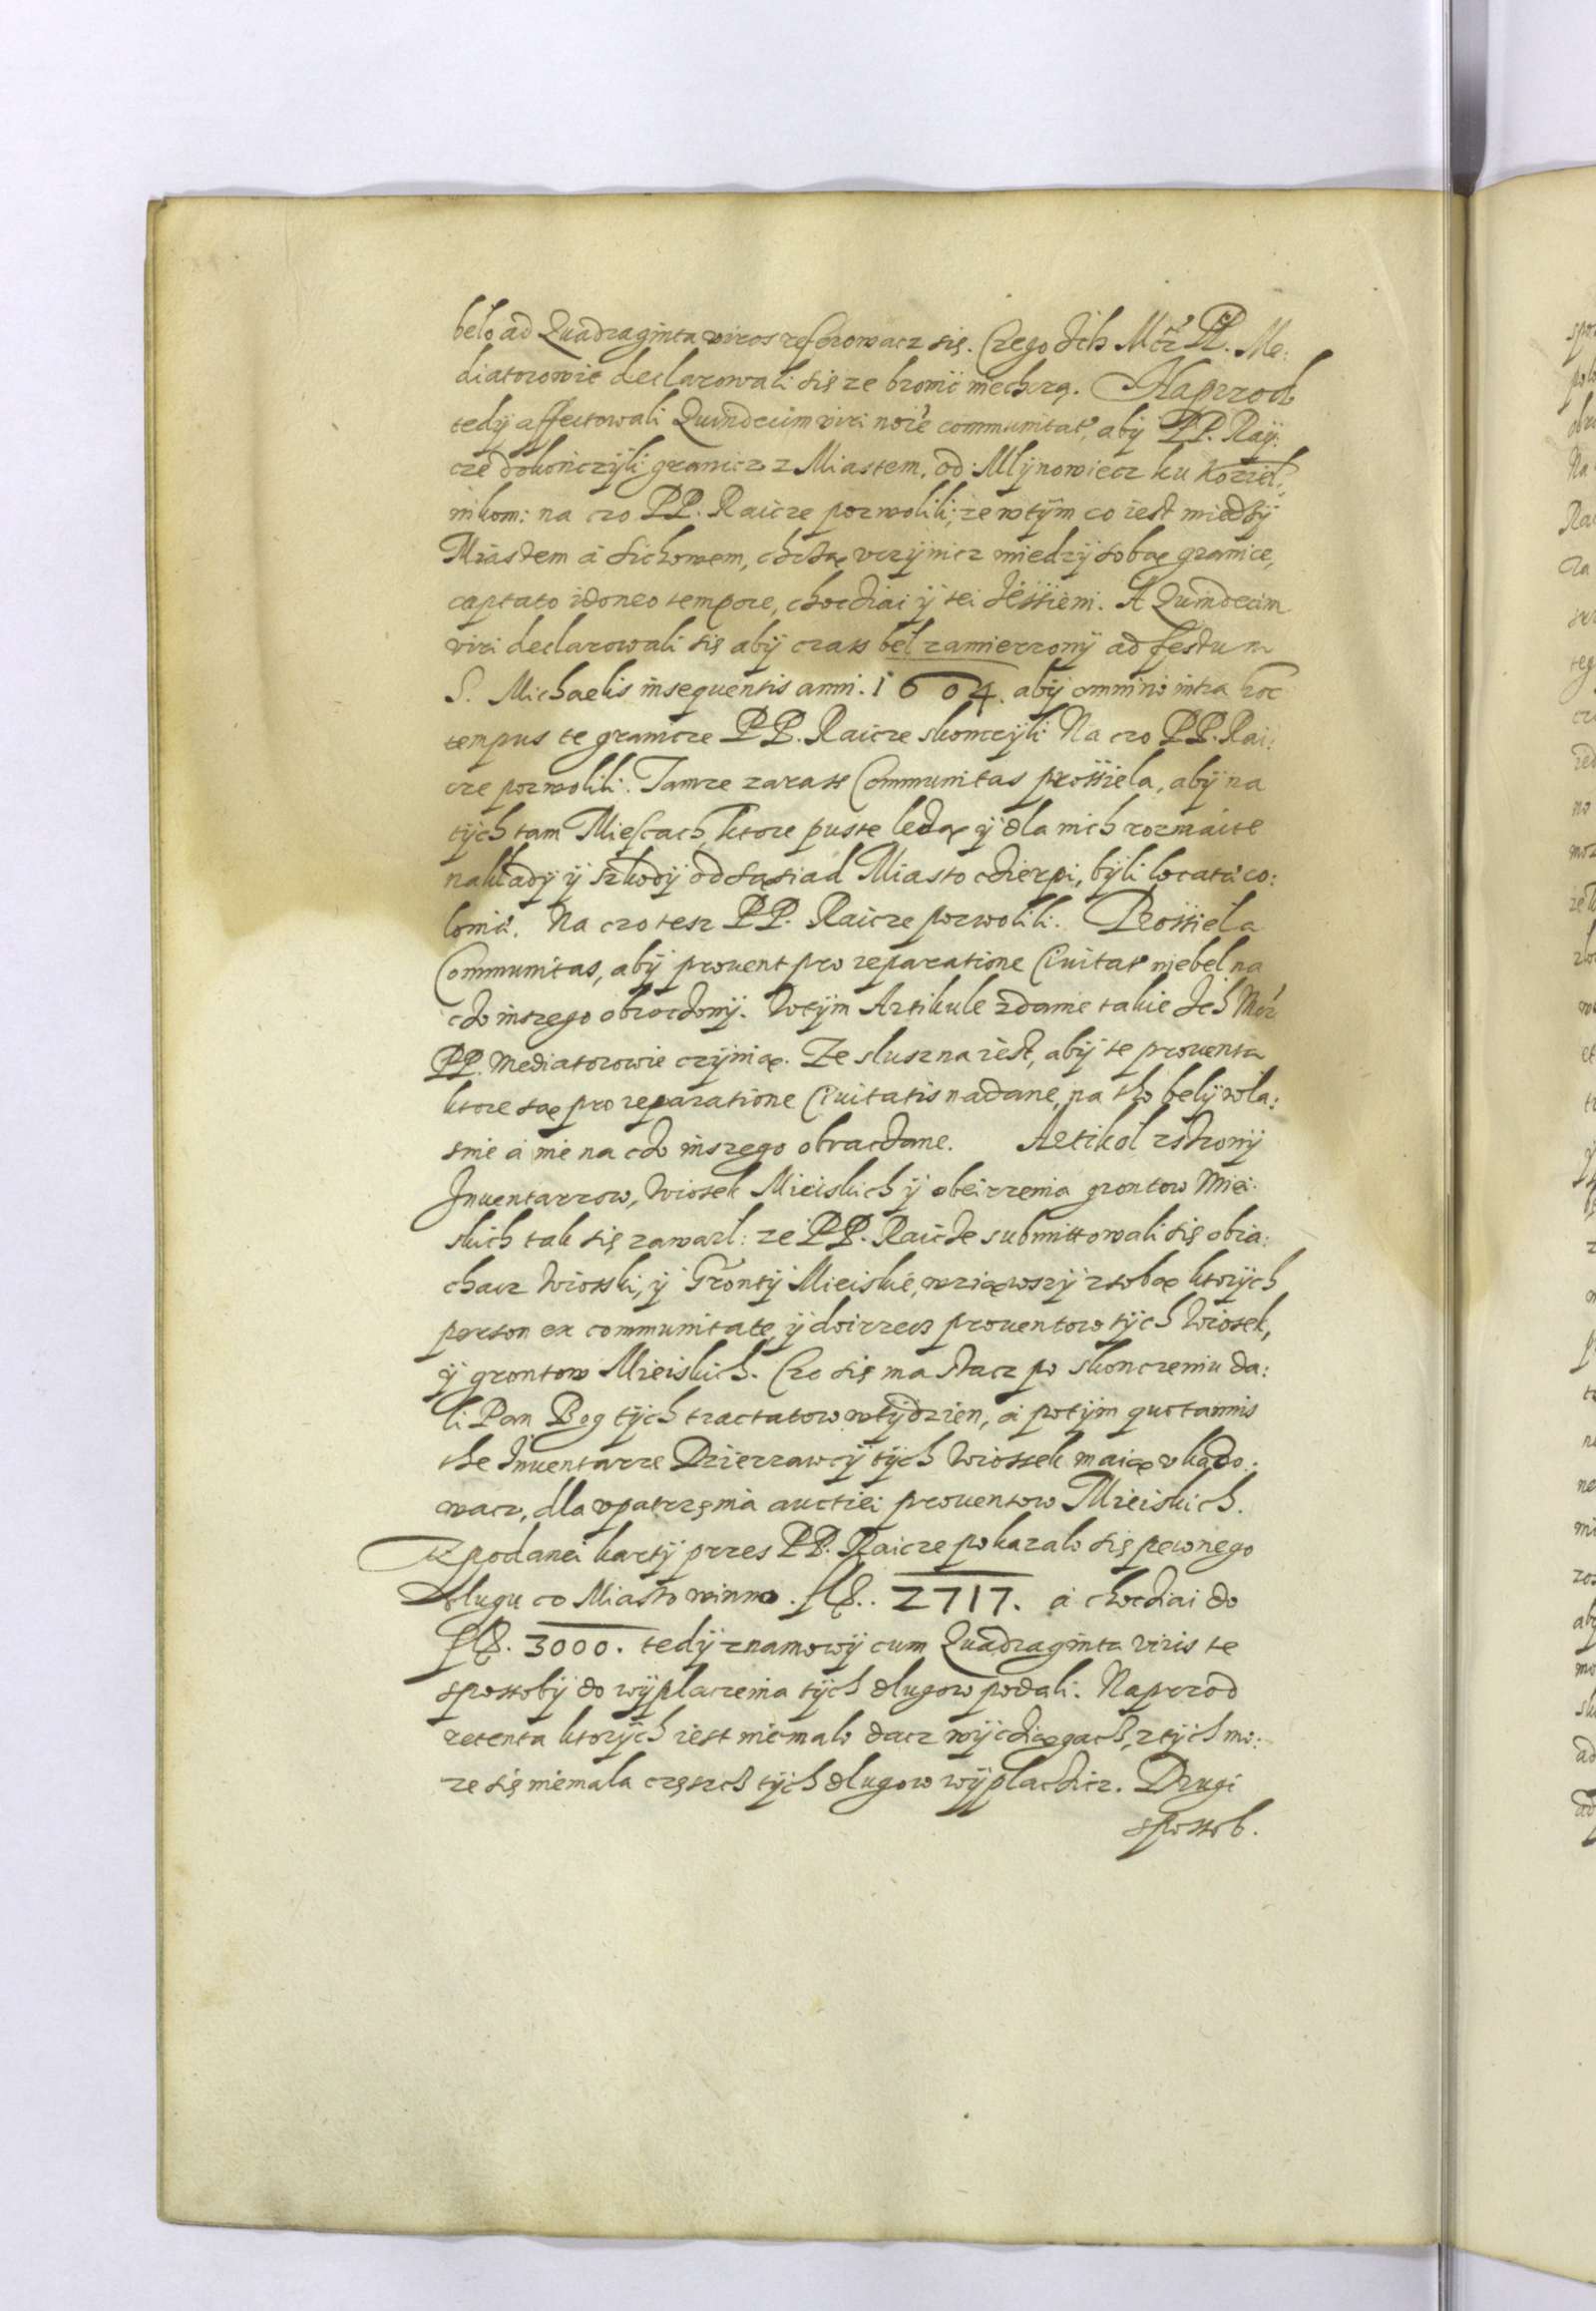 belo ad Quadraginta viros referowacz się. Czego Ich Mcź PP. Me:
diatorowie declarowali się ze bronić niechczą. Naprzod
tedÿ affectowali Quindecim viri noîe communitat, abÿ PP. Raÿ:
cze dokończÿli granicz z Miastem, od Mlÿnowiecz ku Koziel:
nikom: na czo PP. Raicze pozwolili, ze wtÿm co iest miedzÿ
Miastem a Sichowem, chcżą vczÿnicz miedzÿ sobą granice,
captato idoneo tempore, chocżiai ÿ tei Jessieni. A Quindecim
viri declarowali się abÿ czass bel zamierzonÿ ad festum
S. Michaelis insequentis anni. 1604. abÿ omnino intra hoc
tempus te granicze PP. Raicze skonczÿli. Na czo PP. Rai:
cze pozwolili. Tamze zarass Communitas prossiela, abÿ na
tÿch tam Miescach, ktore puste ledżą ÿ dla nich rozmaite
nakladÿ ÿ szkodÿ od sąsiad Miasto cżierpi, bÿli locati co:
loni. Na czo tesz PP. Raicze pozwolili. Prossiela
Communitas, abÿ prouent pro reparatione Ciuitat niebel na
cżo inszego obrocżonÿ. Wtÿm Artikule zdanie takie Ich Mcź
PP. Mediatorowie czÿnią. Ze sluszna iest, abÿ te prouenta
ktore są pro reparatione Ciuitatis nadane, na tho belÿ wla:
snie a nie na cżo inszego obracżane. Artikol zstronÿ
Inuentarzow, Wiosek Mieiskich ÿ obeirzenia grontow Miei:
skich tak się zawarl: ze PP. Raicże submittowali się obia:
chacz Wiosski, ÿ Grontÿ Mieiskie, wziąwszÿ zsobą ktorÿch
person ex communitate, ÿ doirzecz prouentow tÿch Wiosek,
ÿ grontow Mieiskich. Czo się ma stacz po skonczeniu da:
li Pan Bog tÿch tractatow wtÿdzien, a potÿm quotannis
the Inuentarze Dzierzawcÿ tÿch Wiossek maią vkazo:
wacz, dla vpatrzęnia auctiei prouentow Mieiskich.
Z podanei kartÿ przes PP. Raicze pokazalo się pewnego
Dlugu co Miasto winno. fl. 2717. a chocżiai do
fl. 3000. tedÿ znamowÿ cum Quadraginta viris te
sposobÿ do wÿplaczenia tÿch dlugow podali. Naprzod
retenta ktorÿch iest niemalo dacz wÿcżiągacż, z tÿch mo:
ze się niemala częszcż tÿch dlugow wÿplacżicz. Drugi
spossob.